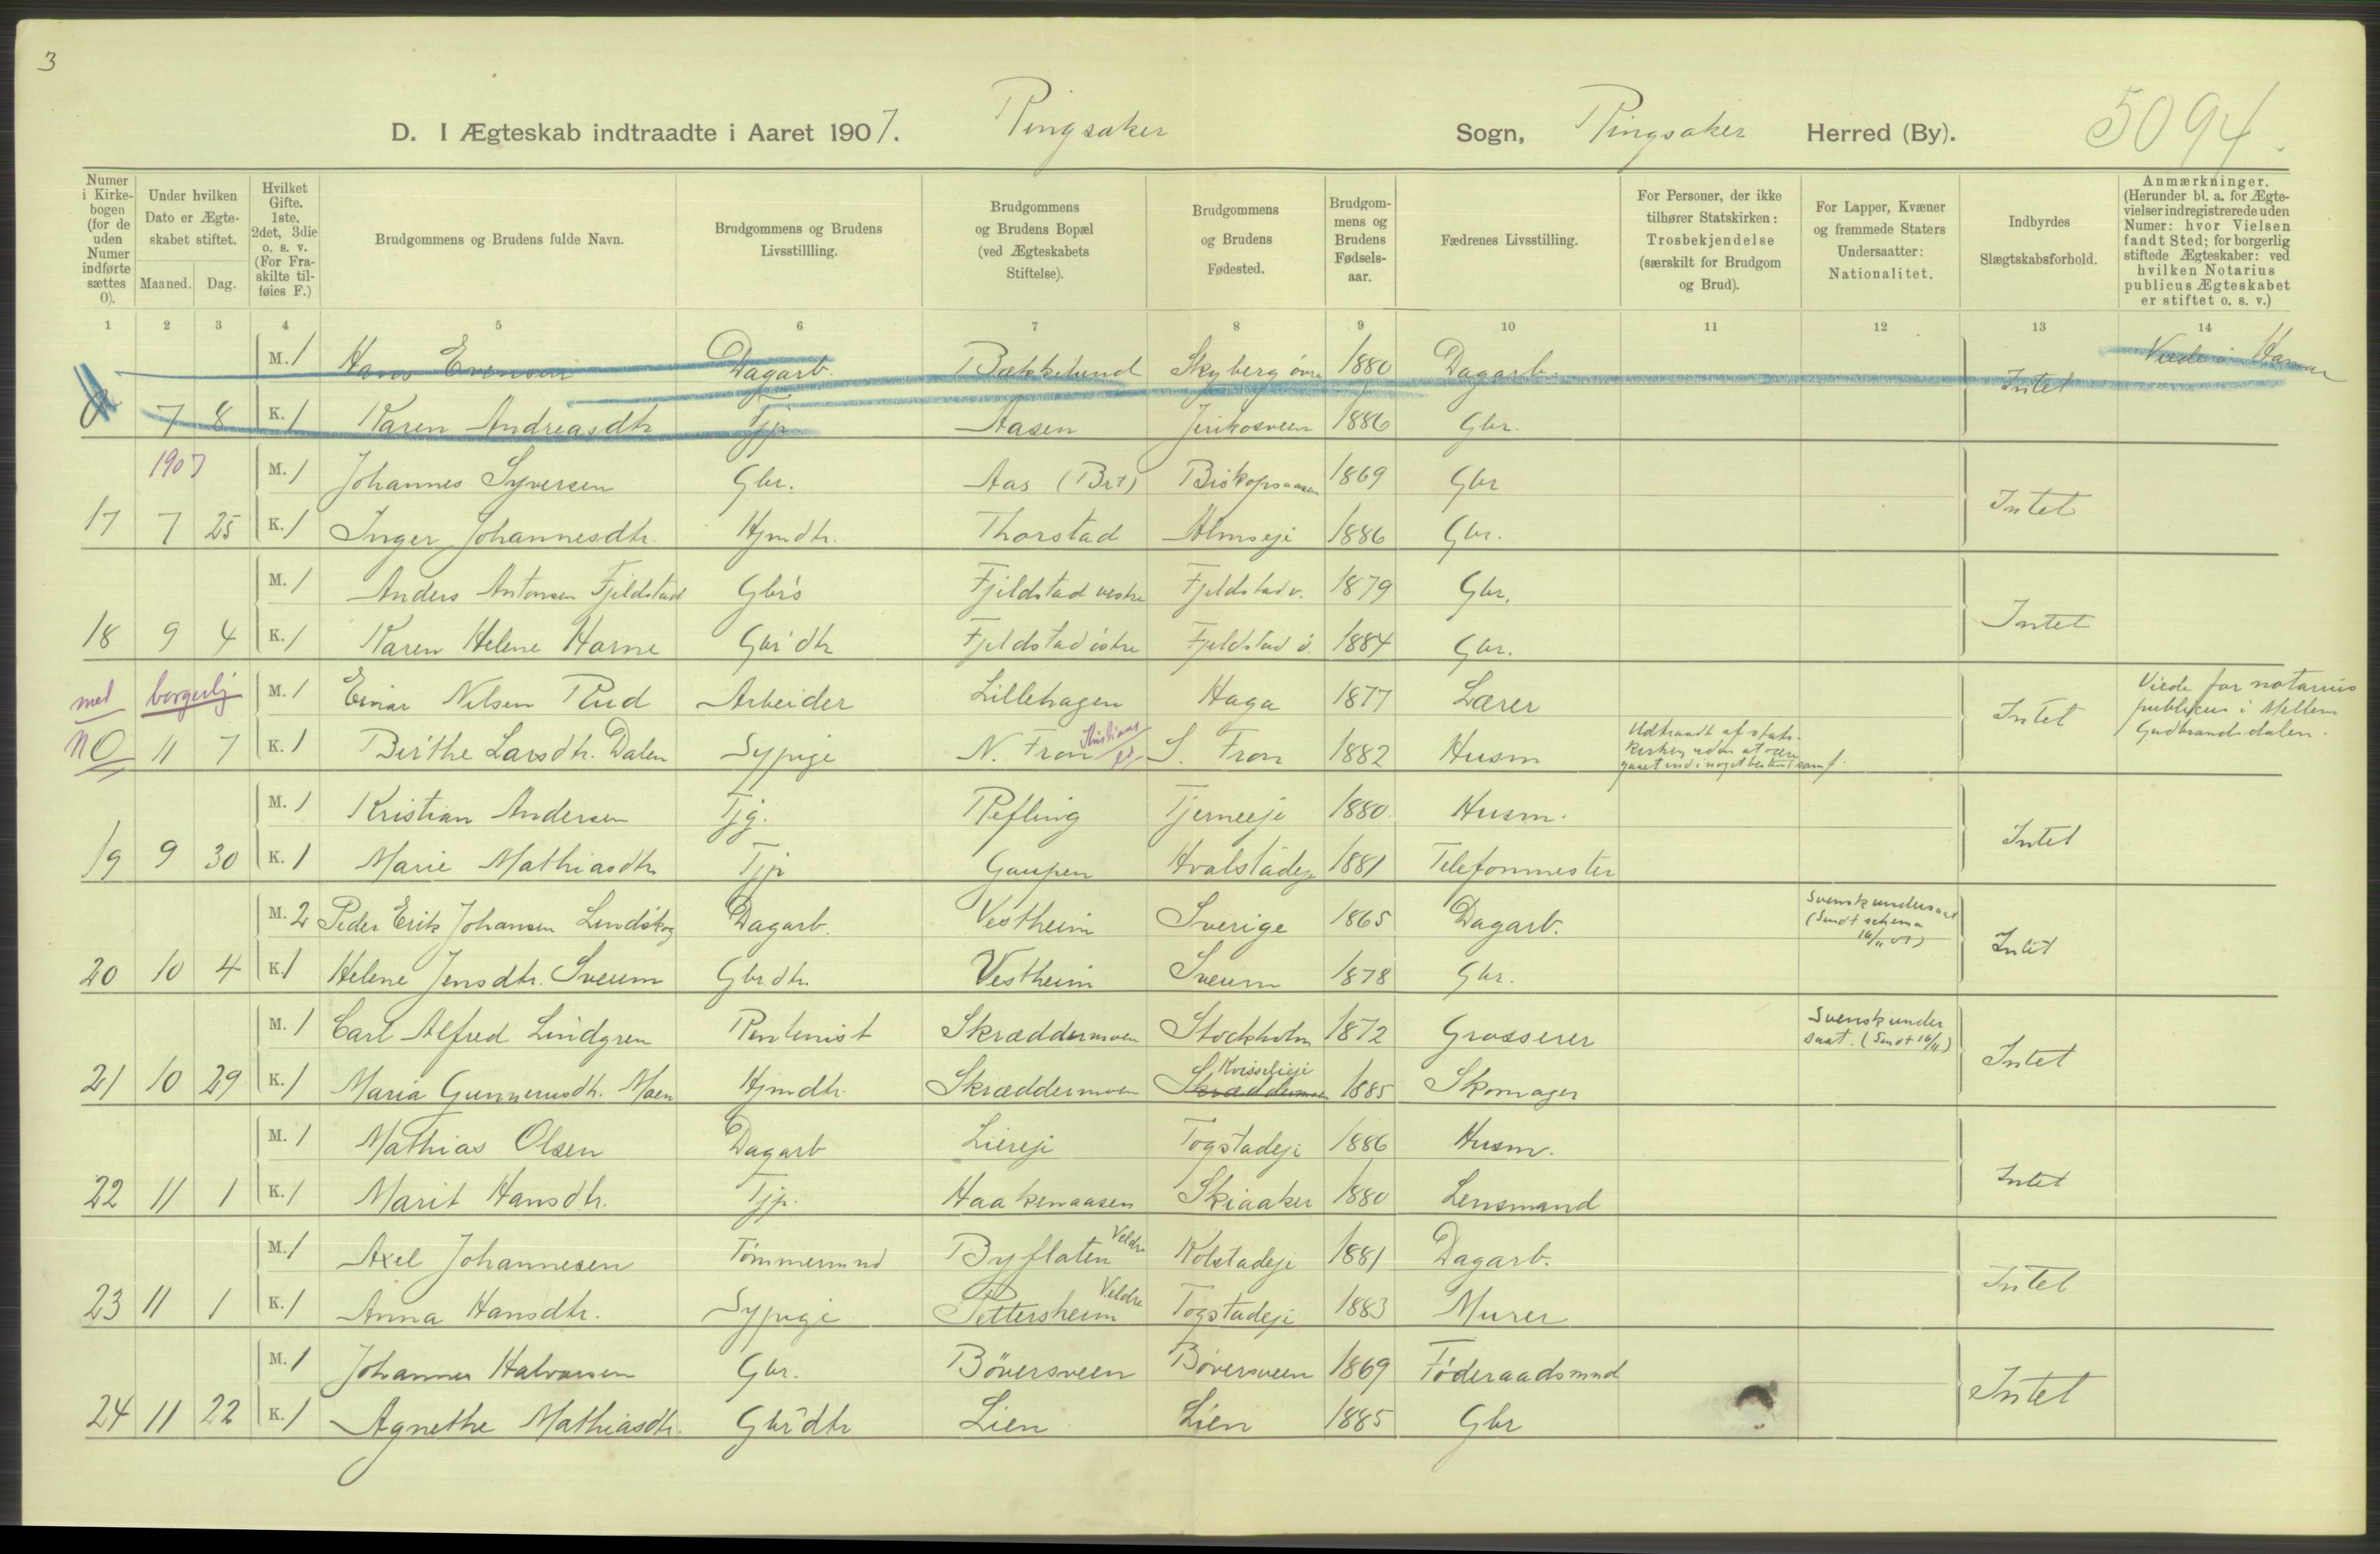 3
D. I Ægteskab indtraadte i Aaret 1907. Ringsaker Sogn, Ringsaker Herred (By). 5094.
Numer i Kirkebogen (for de uden Numer indførte sættes 0).
Under hvilken Dato er Ægteskabet stiftet.
Maaned. Dag.
Hvilket Gifte. 1ste, 2det, 3die o. s. v. (For Fraskilte tilføies F.)
Brudgommens og Brudens fulde Navn.
Brudgommens og Brudens Livsstillling.
Brudgommens og Brudens Bopæl (ved Ægteskabets Stiftelse).
Brudgommens og Brudens Fødested.
Brudgommens og Brudens Fødselsaar.
Fædrenes Livsstilling.
For Personer, der ikke tilhører Statskirken: Trosbekjendelse (særskilt for Brudgom og Brud).
For Lapper, Kvæner og fremmede Staters Undersaatter: Nationalitet.
Indbyrdes Slægtskabsforhold.
Anmærkninger. (Herunder bl. a. for Ægtevielser indregistrerede uden Numer: hvor Vielsen fandt Sted; for borgerlig stiftede Ægteskaber: ved hvilken Notarius publicus Ægteskabet er stiftet o. s. v.)
1 2 3 4 5 6 7 8 9 10 11 12 13 14
M. 1 Hans Evensen Dagarb. Bækkelund Skyberg øvre 1880 Dagarb. Intet Viede i Hamar
7 8 K. 1 Karen Andreasdtr Tjp Aasen Jerikosveen 1886 Gbr.
1907 M. 1 Johannes Syversen Gbr. Aas (Brt) Biskopsaasen 1869 Gbr Intet
17 7 25 K. 1 Inger Johannesdtr. Hjmdtr. Thorstad Almseje 1886 Gbr.
M. 1 Anders Antonsen Fjeldstad Gbrs Fjeldstad vestre Fjeldstad v. 1879 Gbr. Intet
18 9 4 K. 1 Karen Helene Horne Gbr'dtr Fjeldstad østre Fjeldstad ø. 1884 Gbr.
med borgerlig M. 1 Einar Nilsen Rud Arbeider Lillehagen Haga 1877 Lærer Intet Viede for notarius publikus i Mellem Gudbrandsdalen.
NO 11 7 K. 1 Birthe Larsdtr. Dalen Sypige N. Fron S. Fron 1882 Husm Udtraadt af statskirken uden at være gaaet ind i noget bestemt samf.
M. 1 Kristian Andersen Tjg. Refling Tjerneeje 1880 Husm. Intet
19 9 30 K. 1 Marie Mathiasdtr Tjp Gaupen Hvalstadeje 1881 Telefonmester
M. 2 Peder Erik Johansen Lindskog Dagarb. Vestheim Sverige 1865 Dagarb. Svensk undersaat (Sendt schema 16/11 07) Intet
20 10 4 K. 1 Helene Jensdtr. Sveum Gbr.dtr. Vestheim Sveum 1878 Gbr.
M. 1 Carl Alfred Lindgren Rentenist Skræddermoen Stockholm 1872 Grosserer Svensk undersaat. (Sendt 16/11) Intet
21 10 29 K. 1 Maria Gunnerusdtr. Moen Hjmdtr. Skræddermoen Skræddermoen Kvisselieje 1885 Skomager
M. 1 Mathias Olsen Dagarb Liereje Togstadeje 1886 Husm. Intet
22 11 1 K. 1 Marit Hansdtr. Tjp. Haakenaasen Skiaaker 1880 Lensmand
M. 1 Axel Johannesen Tömmermnd Byflaten Veldre Kolstadeje 1881 Dagarb. Intet
23 11 1 K. 1 Anna Hansdtr. Sypige Pettersheim Veldre Togstadeje 1883 Murer
M. 1 Johannes Halvorsen Gbr. Böversveen Böversveen 1869 Föderaadsmnd Intet
24 11 22 K. 1 Agnethe Mathiasdtr. Gbr'dtr Lien Lien 1885 Gbr